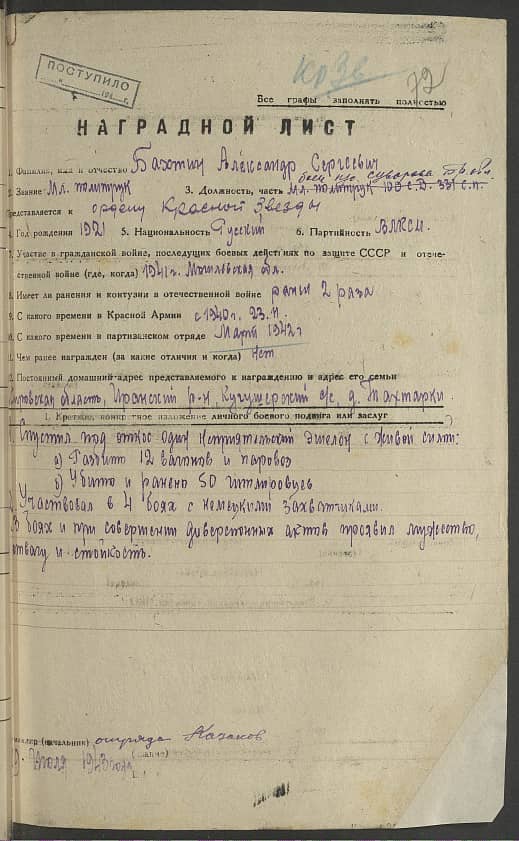 ПОСТУПИЛО
194 г.
Кр Зв
72
Все графы заполнять полностью
НАГРАДНОЙ ЛИСТ
1. Фамилия, имя и отчество Бахтин Александр Сергеевич
2. Звание Мл. политрук 3. Должность, часть Мл. политрук 100 с.д. 331 с.п.
Представляется к ордену Красной Звезды
4. Год рождения 1921 5. Национальность Русский 6. Партийность ВЛКСМ.
7. Участие в гражданской войне, последущих боевых действиях по защите СССР и отече-
ственной войне (где, когда) 1941 г. Могилевская обл.
8. Имеет ли ранения и контузии в отечественной войне ранен 2 раза
9. С какого времени в Красной Армии с 1940 г.
10. С какого времени в партизанском отряде Март 1942 г
11. Чем ранее награжден (за какие отличия и когда) Нет
12. Постоянный домашний адрес представляемого к награждению и адрес его семьи
Кировская область, р-н, Кугушерский с/с, д. Махтарки.
1. Краткое, конкретное изложение личного боевого подвига или заслуг
1) Спустил под откос один неприятельский эшелон с живой силой:
а) Разбито 12 вагонов и паровоз
б) Убито и ранено 50 гитлеровцев
2) Участвовал в 4 боях с немецкими захватчиками.
В боях и при совершении диверсионных актов проявил мужество,
отвагу и стойкость.
Командир (начальник) отряда Казаков
июля 1943 года (звание)